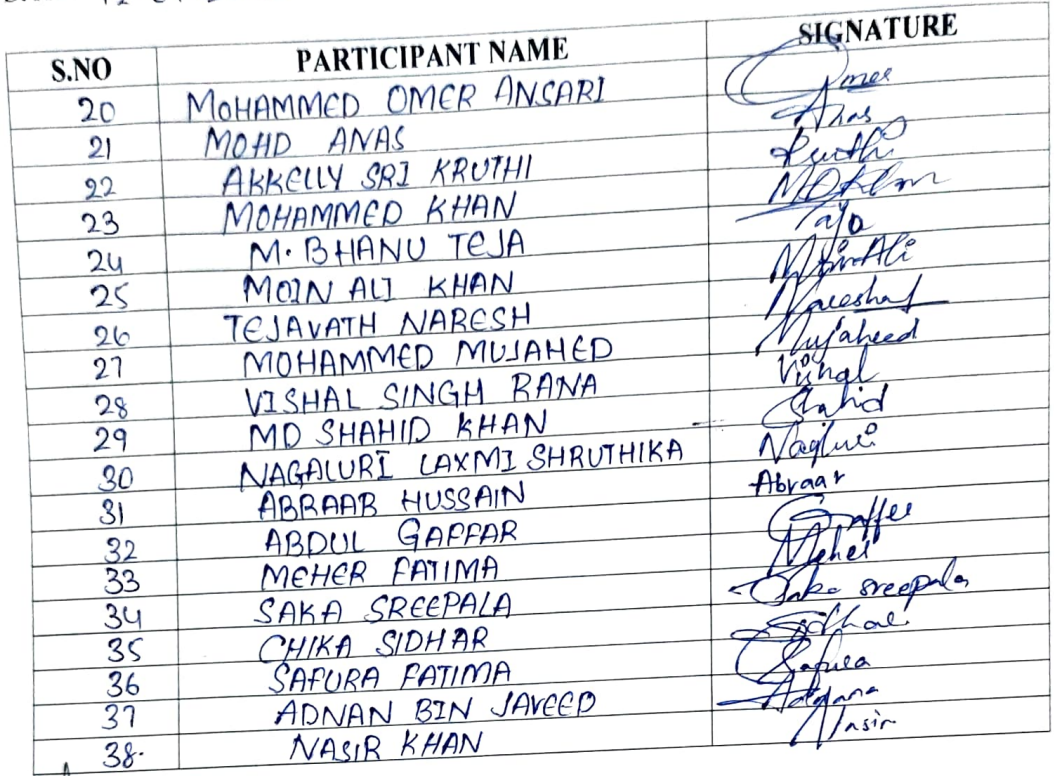 S.NO PARTICIPANT NAME SIGNATURE
20 MOHAMMED OMER ANSARI Omer
21 MOHD ANAS Anas
22 AKKELLY SRI KRUTHI Kruthi
23 MOHAMMED KHAN MDKhan
24 M. BHANU TEJA
25 MOIN ALI KHAN MoinAli
26 TEJAVATH NARESH
27 MOHAMMED MUJAHED Mujaheed
28 VISHAL SINGH RANA Vishal
29 MD SHAHID KHAN Shahid
30 NAGALURI LAXMI SHRUTHIKA
31 ABRAAR HUSSAIN Abraar
32 ABDUL GAFFAR Gaffer
33 MEHER FATIMA Meher
34 SAKA SREEPALA Saka sreepala
35 CHIKA SIDHAR
36 SAFURA FATIMA Safura
37 ADNAN BIN JAVEED
38. NASIR KHAN Nasir